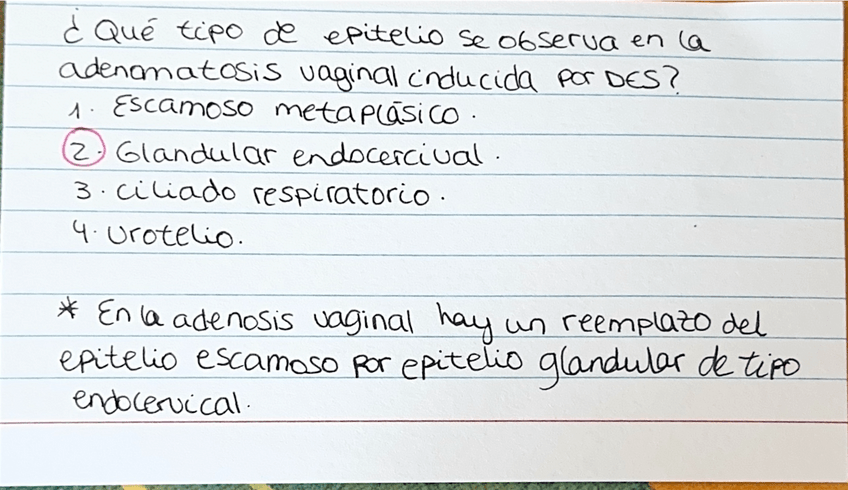 ¿Qué tipo de epitelio se observa en la
adenomatosis vaginal inducida por DES?
1. Escamoso metaplásico.
2. Glandular endocercival.
3. ciliado respiratorio.
4. Urotelio.
* En la adenosis vaginal hay un reemplazo del
epitelio escamoso por epitelio glandular de tipo
endocervical.